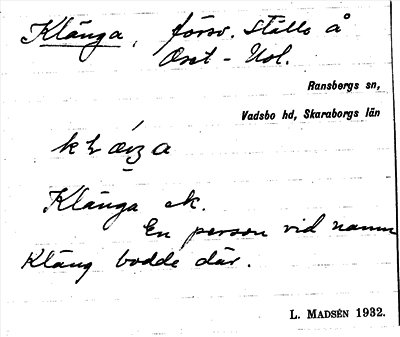 Klänga, försv. Ställe å
Ransbergs sn,
Vadsbo hd, Skaraborgs län
Klänga ek.
En person vid namn
Kläng bodde där.
L. MADSÉN 1932.